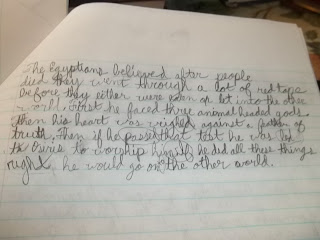 The Egyptians believed after people
died they went through a lot of red tape
before they either were eaten or let into the other
world. First he faced three animal headed gods
then his heart was weighed against a feather of
truth. Then if he passed that test he was led
to Osiris to worship him. If he did all these things
right he would go on to the other world.